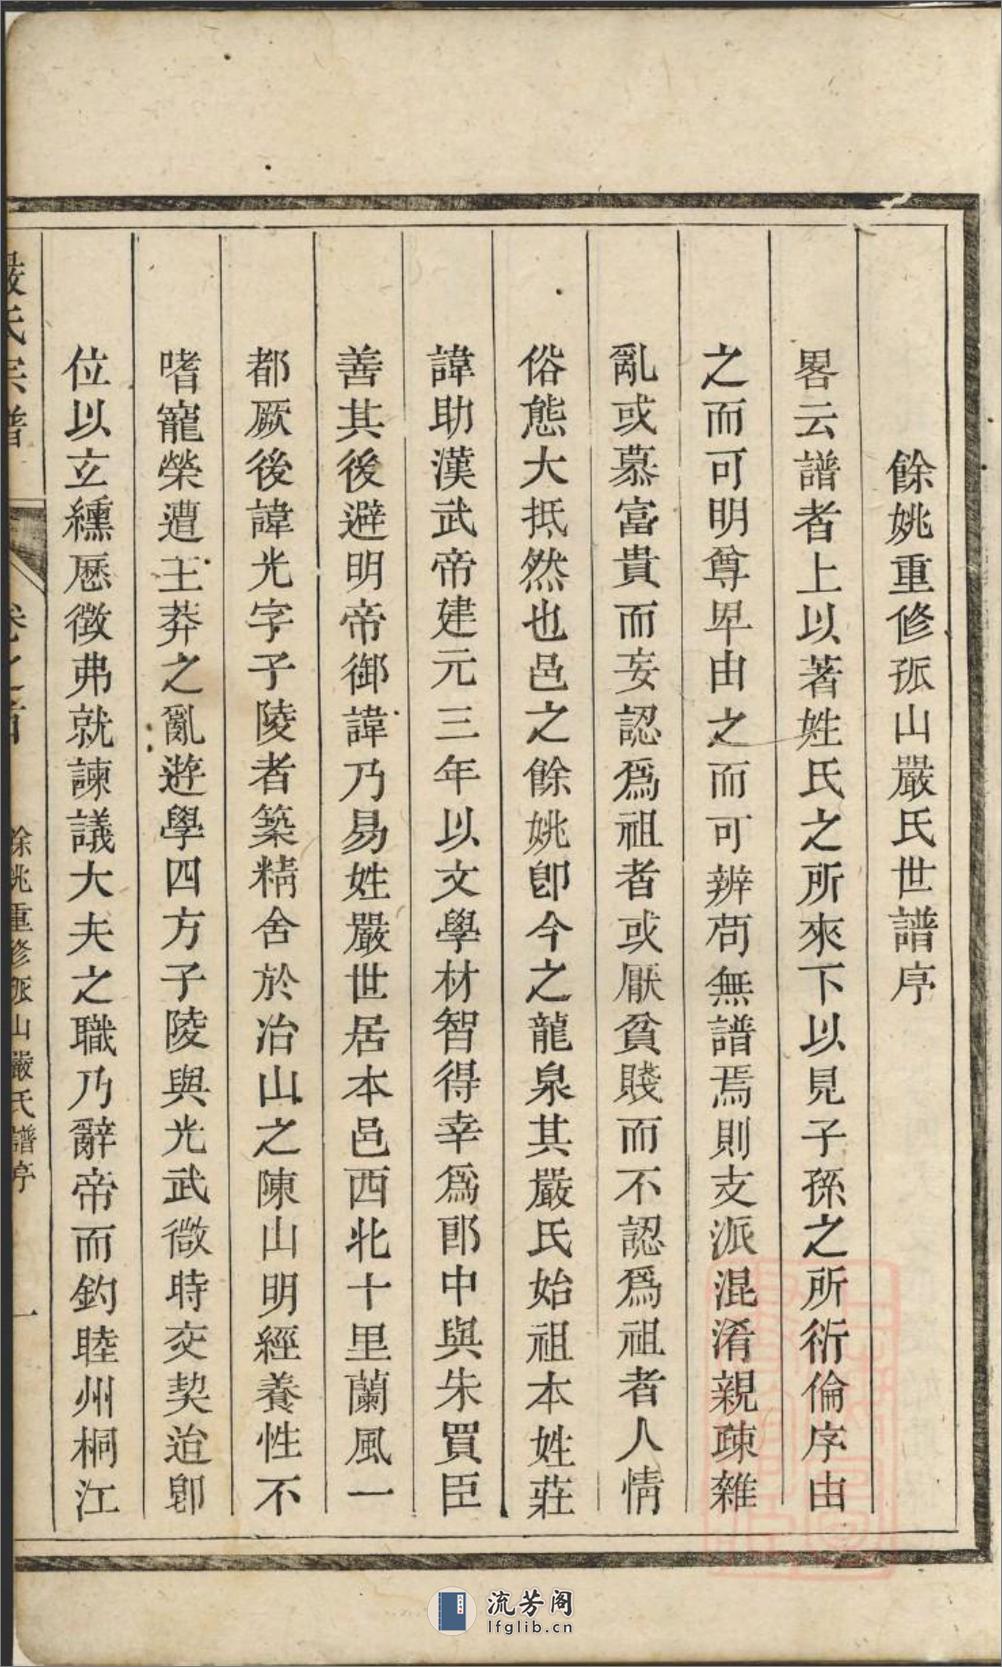 餘姚重修孤山嚴氏世譜序
畧云譜者上以著姓氏之所來下以見子孫之所衍倫序由
之而可明尊卑由之而可辨苟無譜焉則支派混淆親疎雜
亂或慕富貴而妄認爲祖者或厭貧賤而不認爲祖者人情
俗態大抵然也邑之餘姚卽今之龍泉其嚴氏始祖本姓莊
諱助漢武帝建元三年以文學材智得幸爲郎中與朱買臣
善其後避明帝御諱乃易姓嚴世居本邑西北十里蘭風一
都厥後諱光字子陵者築精舍於冶山之陳山明經養性不
嗜寵榮遭王莽之亂遊學四方子陵與光武微時交契迨卽
位以玄纁厯徵弗就諫議大夫之職乃辭帝而釣睦州桐江
嚴氏宗譜
卷之首
餘姚重修孤山嚴氏譜序
一
流芳阁
lfglib.cn